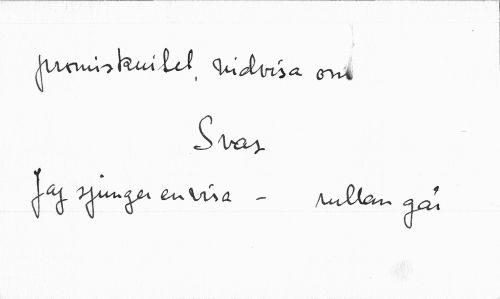 promiskuitet, nidvisa om
Svar
Jag sjunger en visa - rullan går